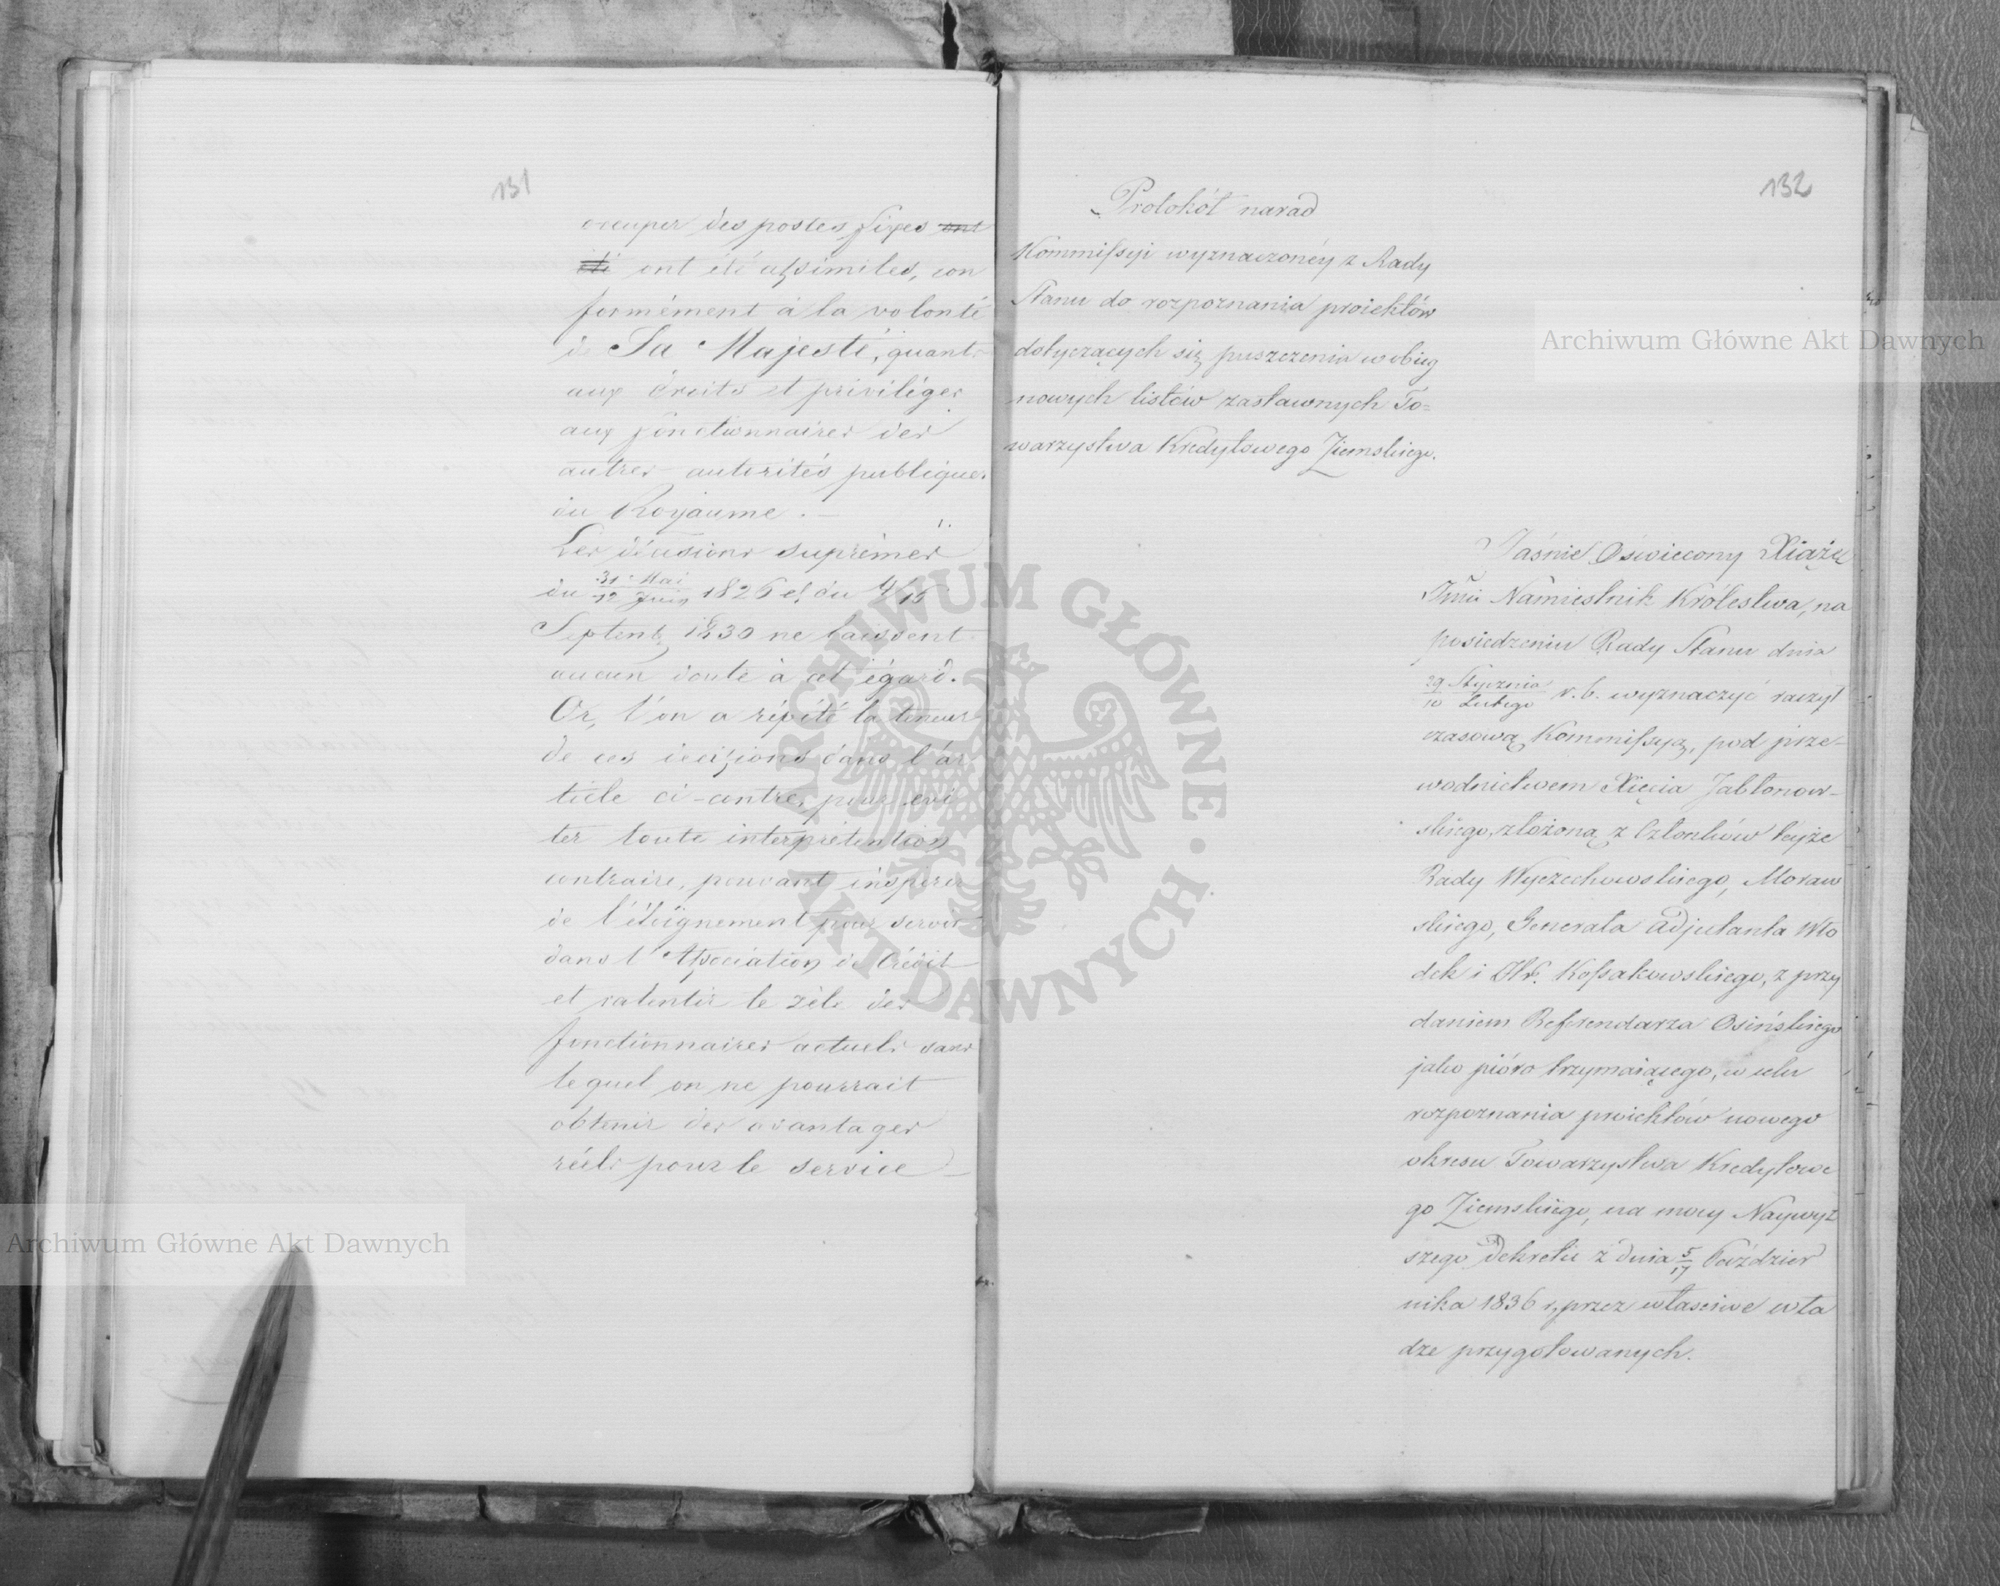 131
occuper des postes fixes ont
été ont été assimilés, con
formément à la volonté
de Sa Majesté, quant
aux droits et privilèges
aux fonctionnaires des
autres autorités publiques
du Royaume. —
Les décisions suprêmes
du 31 Mai/12 Juin 1826 et du 4/16
Septemb 1830 ne laissent
aucun doute à cet égard.
Or, l'on a répété la teneur
de ces décisions dans l'ar
ticle ci-contre, pour evi
ter toute interprétention
contraire, pouvant inspirer
de l'éloignement pour servir
dans l'Association de Crédit
et ralentir le zèle des
fonctionnaires actuels sans
lequel on ne pourrait
obtenir des avantages
réels pour le service —
132
Protokół narad
Kommissyi wyznaczonéy z Rady
Stanu do rozpoznania proiektów
dotyczących się puszczenia w obieg
nowych listów zastawnych To=
warzystwa Kredytowego Ziemskiego.
Jaśnie Oświecony Xiąże
Jmć Namiestnik Królestwa, na
posiedzeniu Rady Stanu dnia
29 Stycznia/10 Lutego r. b. wyznaczyć raczył
czasową Kommissyą, pod prze-
wodnictwem Xięcia Jabłonow-
skiego, złożoną z Członków teyże
Rady Wyczechowskiego, Moraw
skiego, Generała Adjutanta Wło
dek i Hr. Kossakowskiego, z przy
daniem Referendarza Osińskiego
jako pióro trzymaiącego, w celu
rozpoznania proiektów nowego
okresu Towarzystwa Kredytowe
go Ziemskiego, na mocy Naywyż
szego Dekretu z dnia 5/17 Paździer
nika 1836 r. przez właściwe wła
dze przygotowanych.
Archiwum Główne Akt Dawnych
Archiwum Główne Akt Dawnych
ARCHIWUM GŁÓWNE · AKT DAWNYCH ·